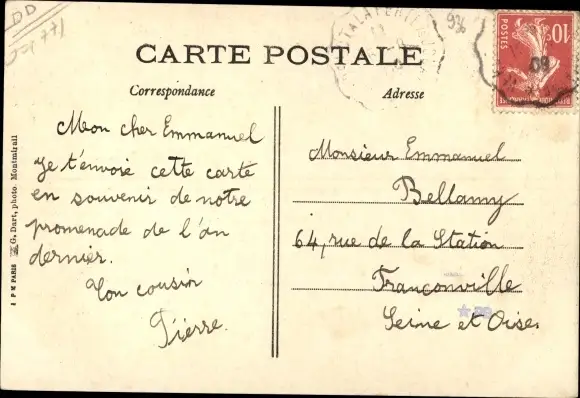 DD
CARTE POSTALE
Correspondance
Adresse
Mon cher Emmanuel
Je t'envoie cette carte
en souvenir de notre
promenade de l'an
dernier.
Ton cousin
Pierre.
Monsieur Emmanuel
Bellamy
64, rue de la Station
Franconville
Seine et Oise.
J P M PARIS G. Dart, photo. Montmirail
POSTES 10c